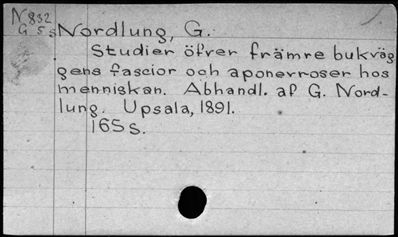 N832
G 5s Nordlung, G.
Studier öfver främre bukväg
gens fascior och aponevroser hos
menniskan. Abhandl. af G. Nord-
lung. Upsala, 1891.
165 s.